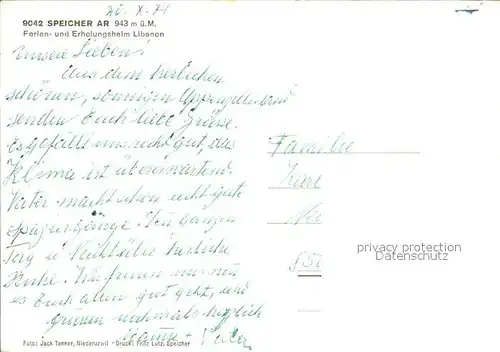 20.X.71
9042 SPEICHER AR 943 m ü.M.
Ferien- und Erholungsheim Libanon
Unsere Lieben!
Aus dem herrlichen
schönen, sonnigen Appenzellerland
senden Euch liebe Grüsse.
Es gefällt uns recht gut, das
Klima ist überwältigend.
Vater macht schon recht gute
Spaziergänge. Den ganzen
Tag u Nacht über herrliche
Ruhe. Wir freuen uns
es Euch allen gut geht, und
grüssen nochmals herzlich
+ Vater
Familie
privacy protection
Datenschutz
Foto: Jack Tanner, Niederuzwil - Druck: Fritz Lutz, Speicher